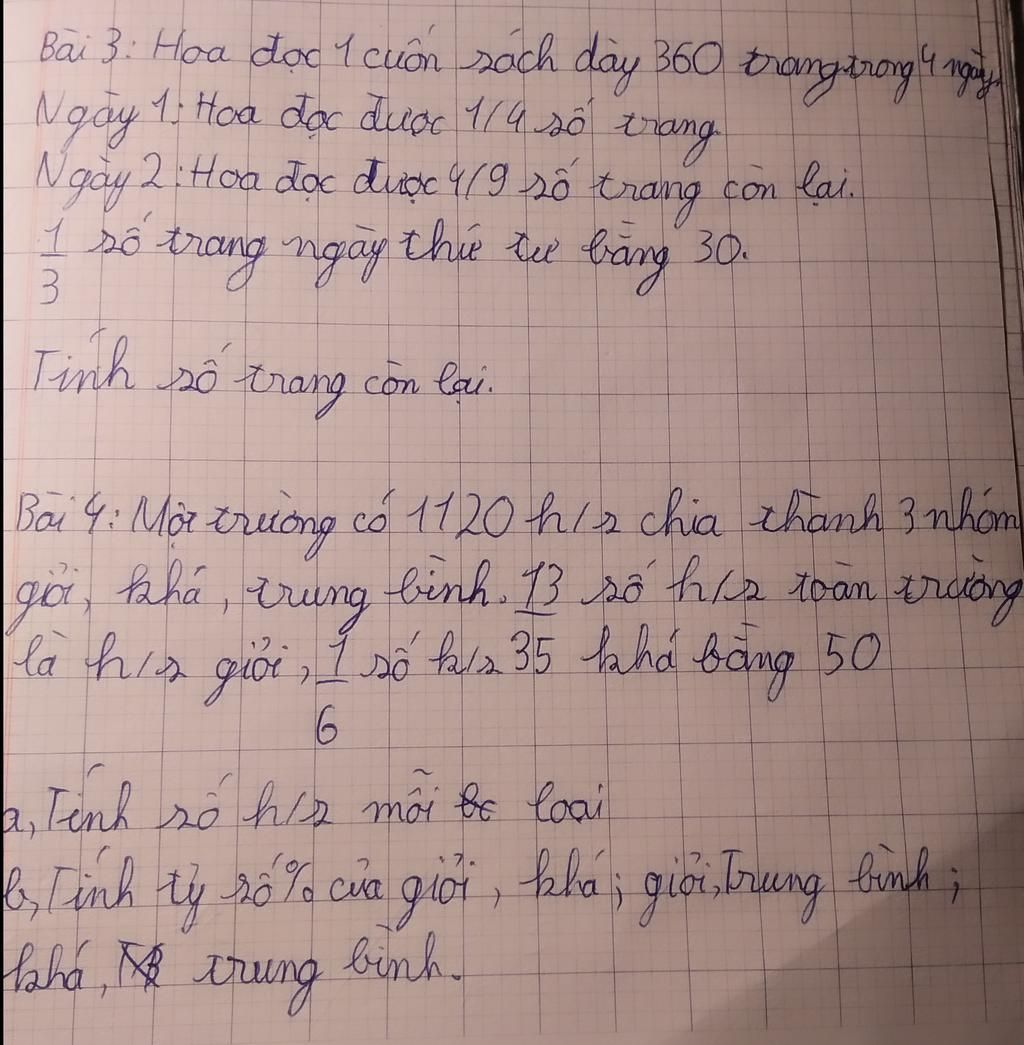 Bài 3: Hoa đọc 1 cuốn sách dày 360 trang trong 4 ngày.
Ngày 1: Hoa đọc được 1/4 số trang.
Ngày 2: Hoa đọc được 4/9 số trang còn lại.
1/3 số trang ngày thứ tư bằng 30.
Tính số trang còn lại.
Bài 4: Một trường có 1120 h/s chia thành 3 nhóm
giỏi, khá, trung bình. 13/35 số h/s toàn trường
là h/s giỏi, 1/6 số h/s khá bằng 50
a, Tính số h/s mỗi loại
b, Tính tỷ số % của giỏi, khá; giỏi, Trung bình;
khá, trung bình.